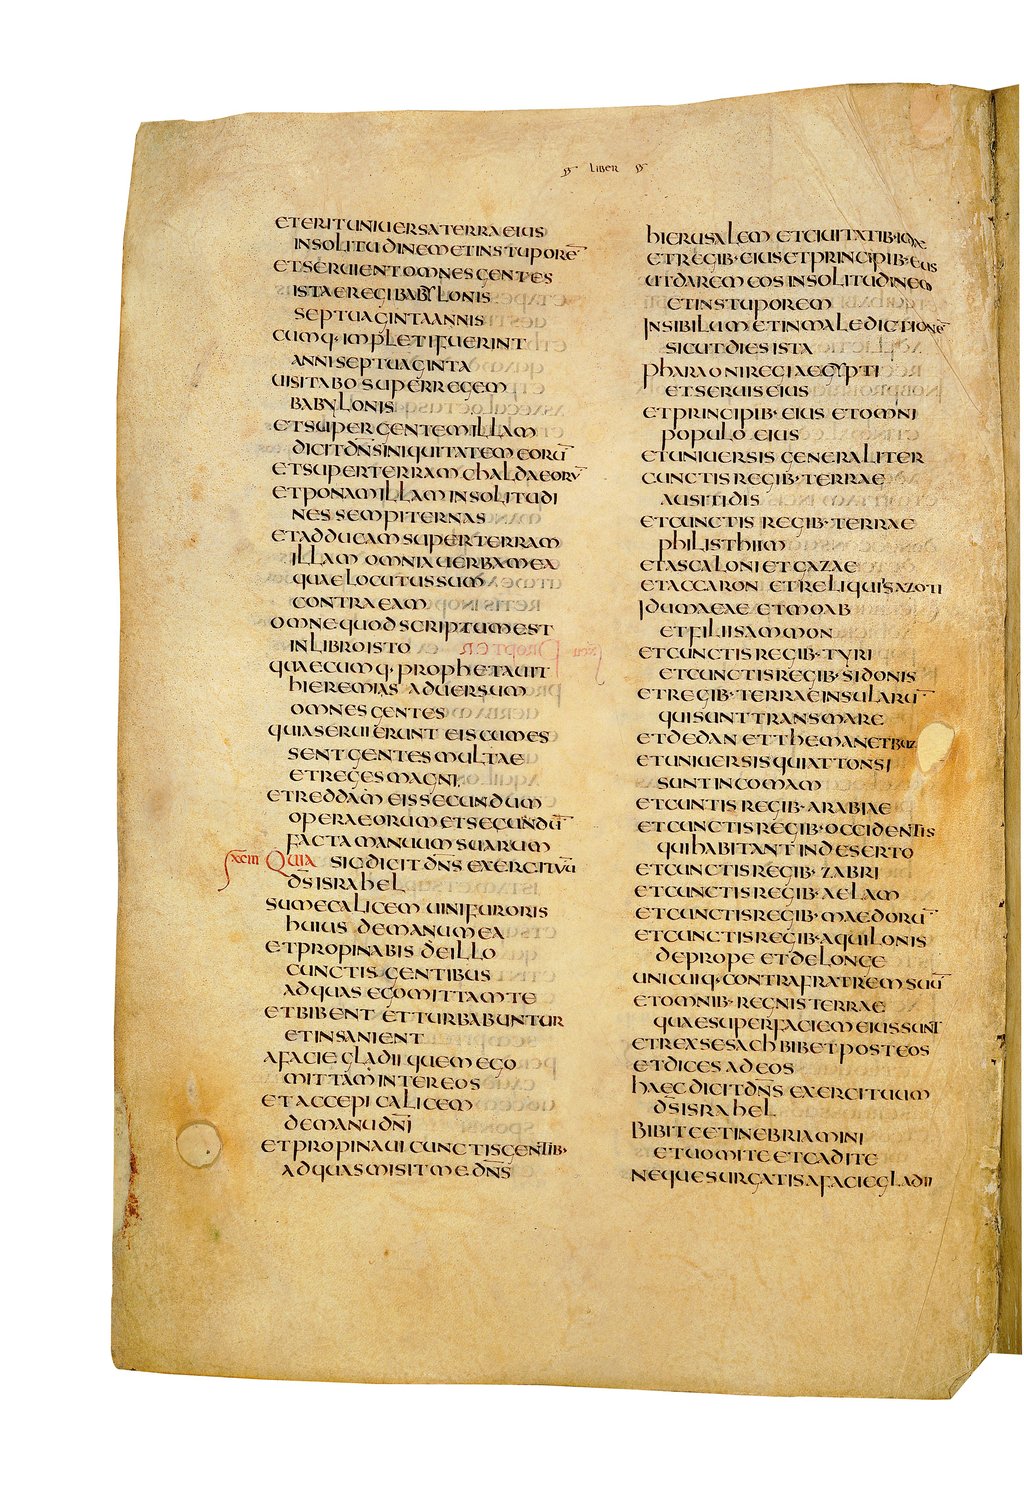 liber
ETERITUNIUERSATERRAEIUS
INSOLITUDINEMETINSTUPORE̅
ETSERUIENTOMNESGENTES
ISTAEREGIBABYLONIS
SEPTUAGINTAANNIS
CUMQ·IMPLETIFUERINT
ANNISEPTUAGINTA
UISITABOSUPERREGEM
BABYLONIS
ETSUPERGENTEMILLAM
DICITDN̅SINIQUITATEMEORU̅
ETSUPERTERRAMCHALDAEORU̅
ETPONAMILLAMINSOLITUDI
NESSEMPITERNAS
ETADDUCAMSUPERTERRAM
ILLAMOMNIAUERBAMEA
QUAELOCUTUSSUM
CONTRAEAM
OMNEQUODSCRIPTUMEST
INLIBROISTO
QUAECUMQ·PROPHETAUIT
HIEREMIASADUERSUM
OMNESGENTES
QUIASERUIERUNTEISCUMES
SENTGENTESMULTAE
ETREGESMAGNI
ETREDDAMEISSECUNDUM
OPERAEORUMETSECUNDU̅
FACTAMANUUMSUARUM
xciii QUIA SICDICITDN̅SEXERCITUU̅
DS̅ISRAHEL
SUMECALICEMUINIFURORIS
HUIUSDEMANUMEA
ETPROPINABISDEILLO
CUNCTISGENTIBUS
ADQUASEGOMITTAMTE
ETBIBENTETTURBABUNTUR
ETINSANIENT
AFACIEGLADIIQUEMEGO
MITTAMINTEREOS
ETACCEPICALICEM
DEMANUDN̅I
ETPROPINAUICUNCTISGENTIB·
ADQUASMISITMEDN̅S
HIERUSALEMETCIUITATIB·IUDAE
ETREGIB·EIUSETPRINCIPIB·EIUS
UTDAREMEOSINSOLITUDINEM
ETINSTUPOREM
INSIBILUMETINMALEDICTIONE̅
SICUTDIESISTA
PHARAONIREGIAEGYPTI
ETSERUISEIUS
ETPRINCIPIB·EIUSETOMNI
POPULOEIUS
ETUNIUERSISGENERALITER
CUNCTISREGIB·TERRAE
AUSITIDIS
ETCUNCTISREGIB·TERRAE
PHILISTHIIM
ETASCALONIETGAZAE
ETACCARONETRELIQUISAZOTI
IDUMAEAEETMOAB
ETFILIISAMMON
ETCUNCTISREGIB·TYRI
ETCUNCTISREGIB·SIDONIS
ETREGIB·TERRAEINSULARU̅
QUISUNTTRANSMARE
ETDEDANETTHEMANETBUZ
ETUNIUERSISQUIATTONSI
SUNTINCOMAM
ETCUNTISREGIB·ARABIAE
ETCUNCTISREGIB·OCCIDENTIS
QUIHABITANTINDESERTO
ETCUNCTISREGIB·ZABRI
ETCUNCTISREGIB·AELAM
ETCUNCTISREGIB·MAEDORU̅
ETCUNCTISREGIB·AQUILONIS
DEPROPEETDELONGE
UNICUIQ·CONTRAFRATREMSUU̅
ETOMNIB·REGNISTERRAE
QUAESUPERFACIEMEIUSSUNT
ETREXSESACHBIBETPOSTEOS
ETDICESADEOS
HAECDICITDN̅SEXERCITUUM
DS̅ISRAHEL
BIBITEETINEBRIAMINI
ETUOMITEETCADITE
NEQUESURGATISAFACIEGLADII